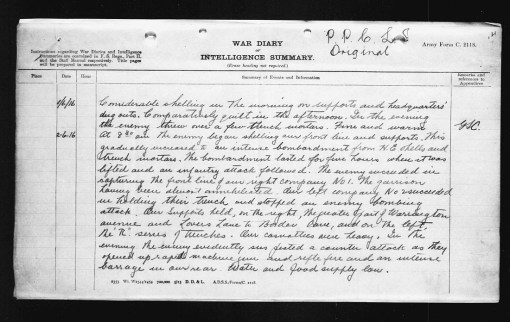 P.P.C.L.I.
Original
WAR DIARY
or
INTELLIGENCE SUMMARY.
(Erase heading not required.)
Army Form C. 2118.
Instructions regarding War Diaries and Intelligence
Summaries are contained in F. S. Regs., Part II.
and the Staff Manual respectively. Title pages
will be prepared in manuscript.
Place
Date
Summary of Events and Information
Remarks and
references to
Appendices
1/6/16
Considerable shelling in the morning on supports and headquarters
dug outs. Comparatively quiet in the afternoon. In the evening
the enemy threw over a few trench mortars. Fine and warm
2-6-16
At 8 30 am the enemy began shelling our front line and supports. This
gradually increased to an intense bombardment from H.E. shells and
trench mortars. The bombardment lasted for five hours when it was
lifted and an infantry attack followed. The enemy succeeded in
capturing the front line of our right company No 1. The garrison
having been almost annihilated. Our left company No 2 succeeded
in holding their trench and stopped an enemy bombing
attack. Our supports held, on the right, the greater part of Warrington
avenue and Lovers Lane to Border Lane, and on the left,
the "R" series of trenches. Our casualties were heavy. In the
evening the enemy evidently suspected a counter attack as they
opened up rapid machine gun and rifle fire and an intense
barrage in our rear. Water and food supply low.